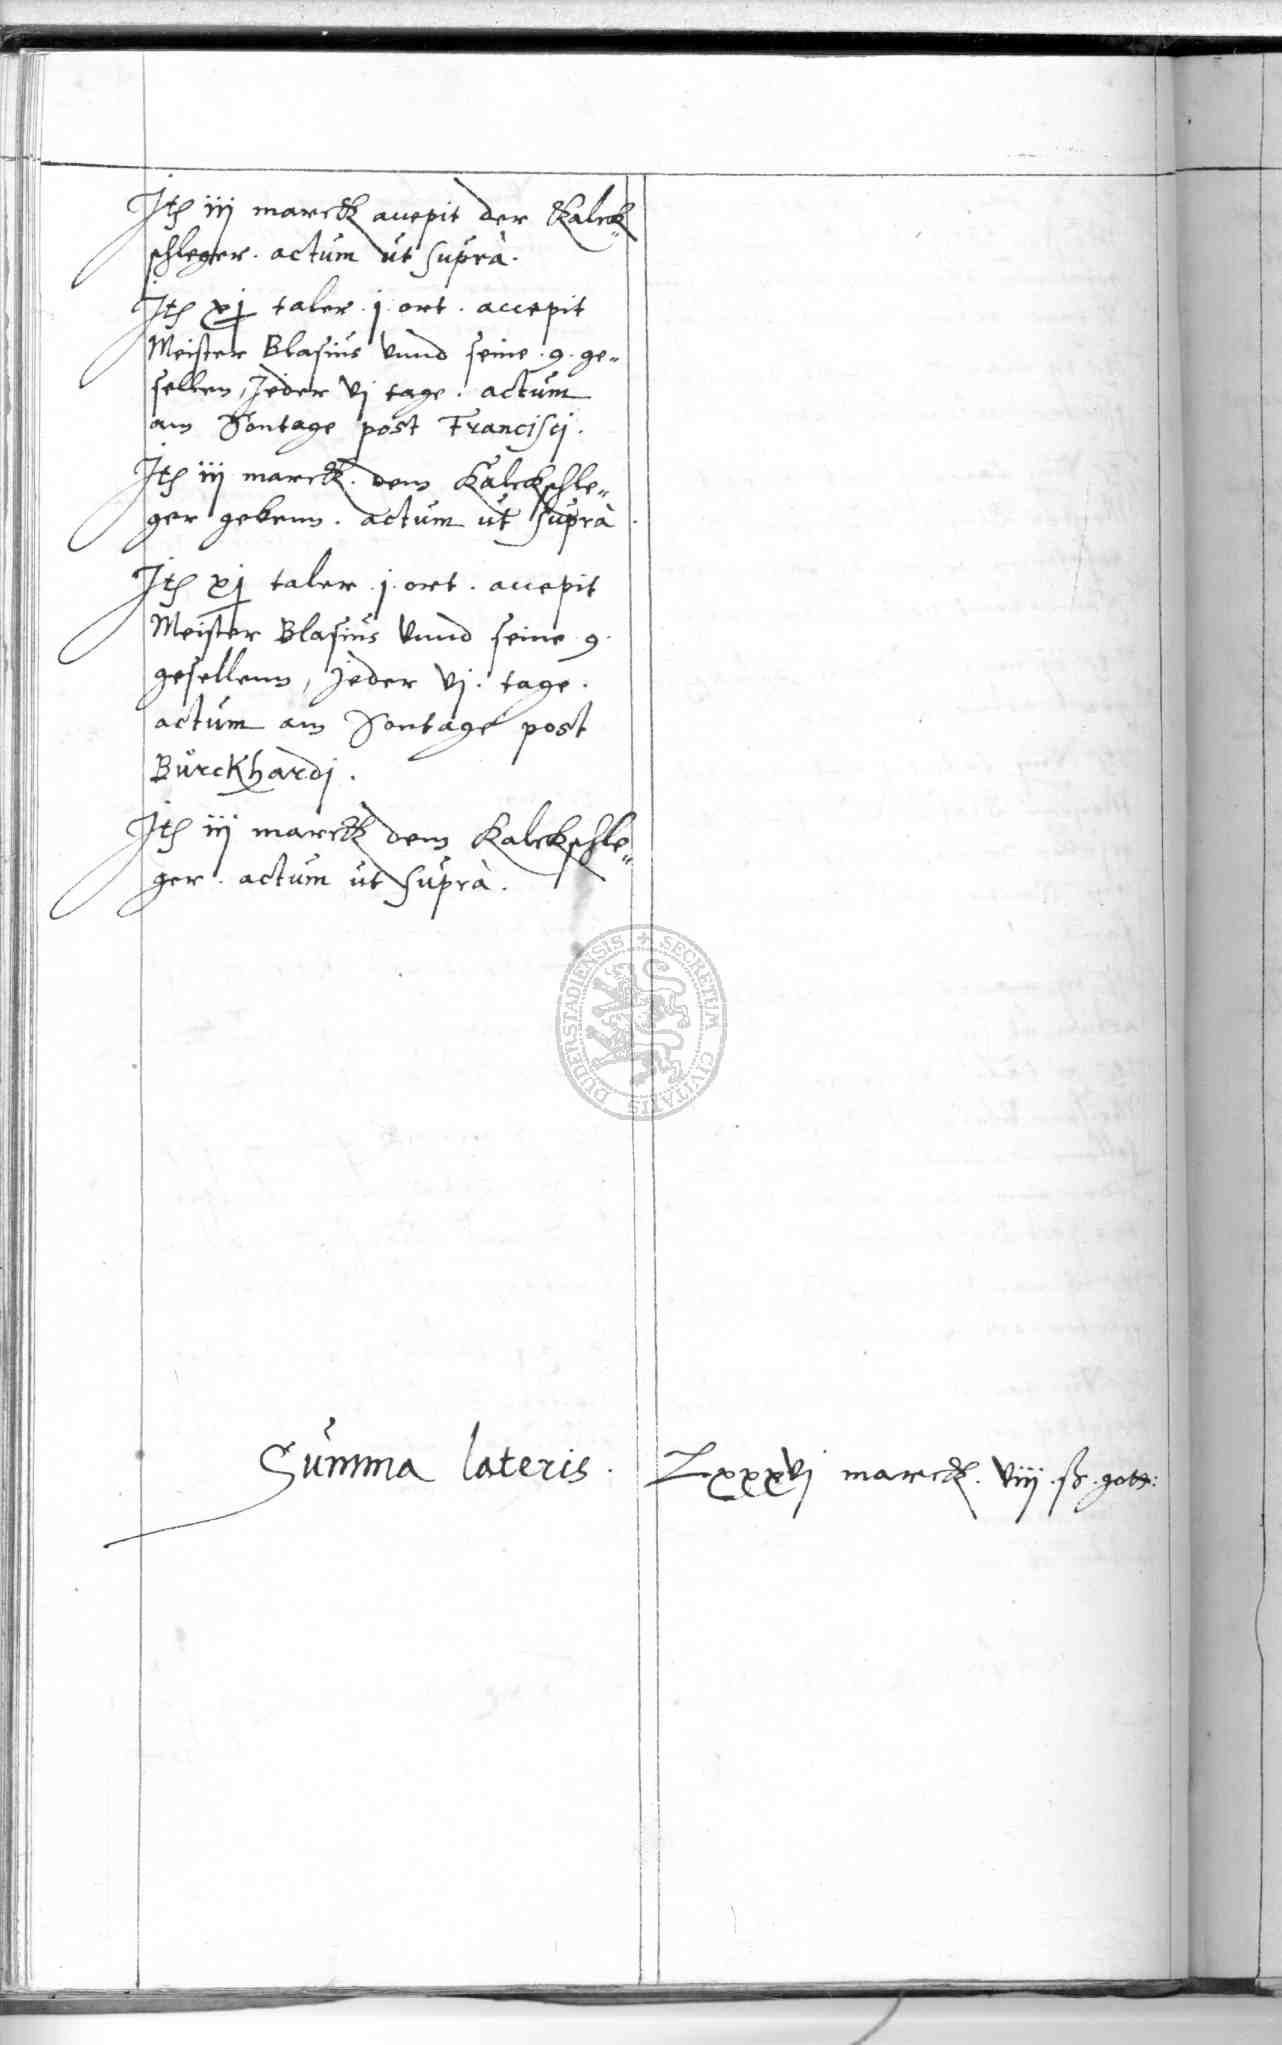 Itē iij marck accepit der Kalck„
schleger. actum ut suprà.
Itē xj taler. j. ort. accepit
Meister Blasius vnnd seine. 9. ge„
sellen, Jeder vj tage. actum
am Sontage post Francisci.
Itē iij marck. dem Kalckschle„
ger gebenn. actum ut suprà.
Itē xj taler. j. ort. accepit
Meister Blasius vnnd seine 9.
gesellenn, Jeder vj. tage.
actum am Sontage post
Burckhardj.
Itē iij marck dem Kalckschle„
ger. actum ut suprà.
SECRETUM CIVITATIS DUDERSTADIENSIS
Summa lateris. Lxxxvj marck. viij. ß. gott: